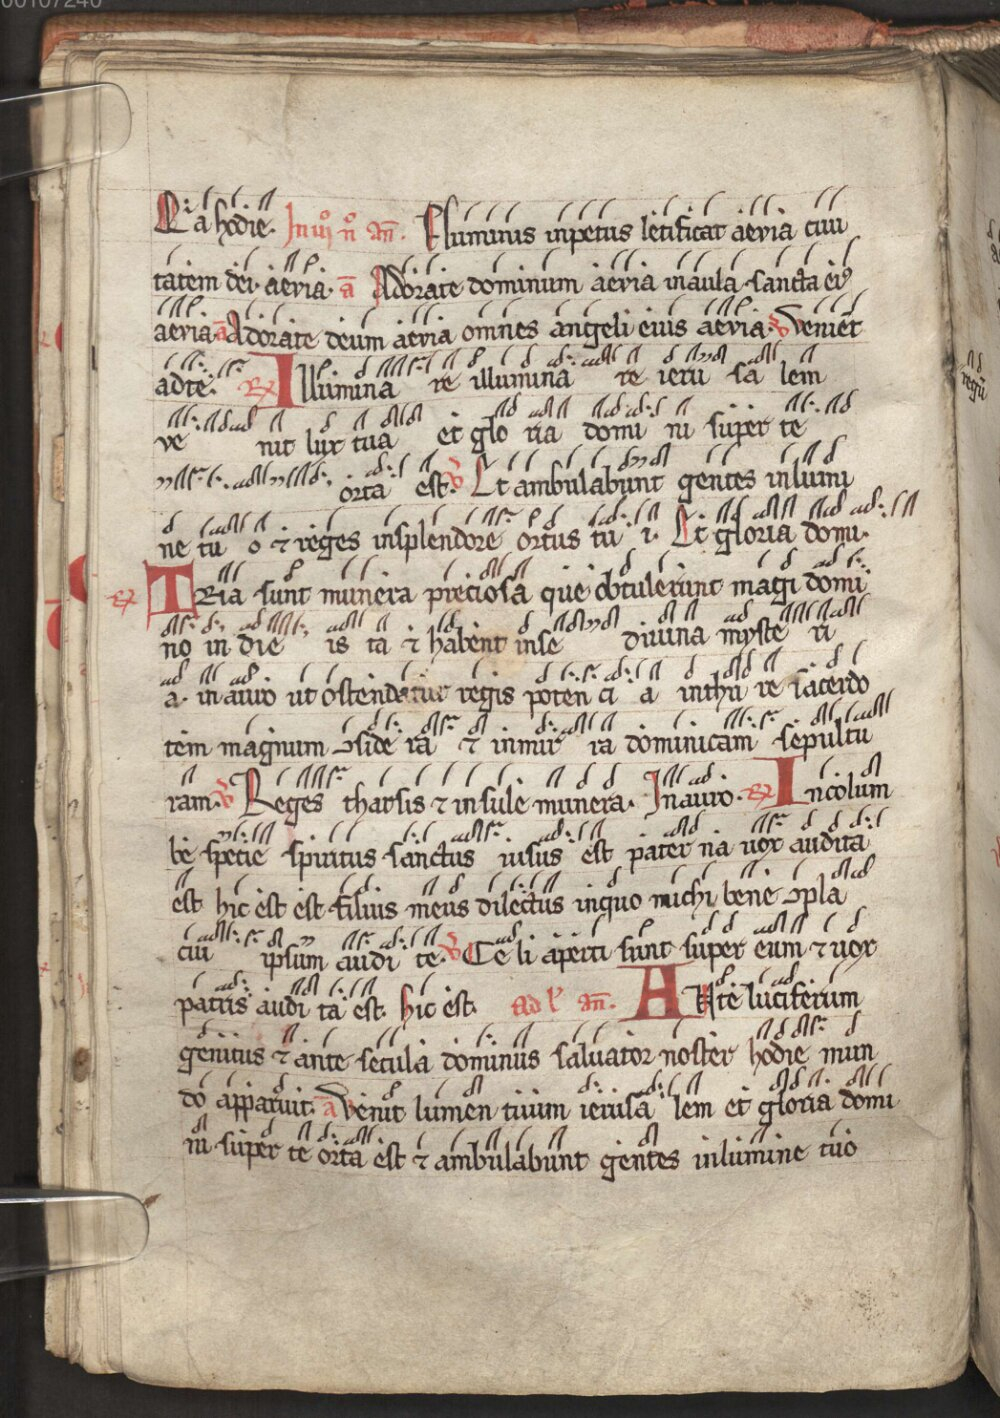 00107240
Quia hodie. In iii n an. Fluminis inpetus letificat aevia ciui
tatem dei aevia. a Adorate dominum aevia in aula sancta eius
aevia. a Adorate deum aevia omnes angeli eius aevia. v Veniet
ad te. R Illumina re illumina re ieru sa lem
ve nit lux tua et glo ria domi ni super te
orta est. v Et ambulabunt gentes in lumi
ne tu o et reges in splendore ortus tu i. Et gloria domi.
R Tria sunt munera preciosa que obtulerunt magi domi
no in die is ta et habent in se diuina myste ri
a. in auro ut ostendatur regis poten ci a in thu re sacerdo
tem magnum 9side ra et in mir ra dominicam sepultu
ram. v Reges tharsis et insule munera. In auro. R In colum
be specie spiritus sanctus uisus est pater na uox audita
est hic est est filius meus dilectus in quo michi bene 9pla
cui ipsum audi te. v Celi aperti sunt super eum et uox
patris audi ta est. hic est. ad l an. Ante luciferum
genitus et ante secula dominus saluator noster hodie mun
do apparuit. a Venit lumen tuum ierusa lem et gloria domi
ni super te orta est et ambulabunt gentes in lumine tuo